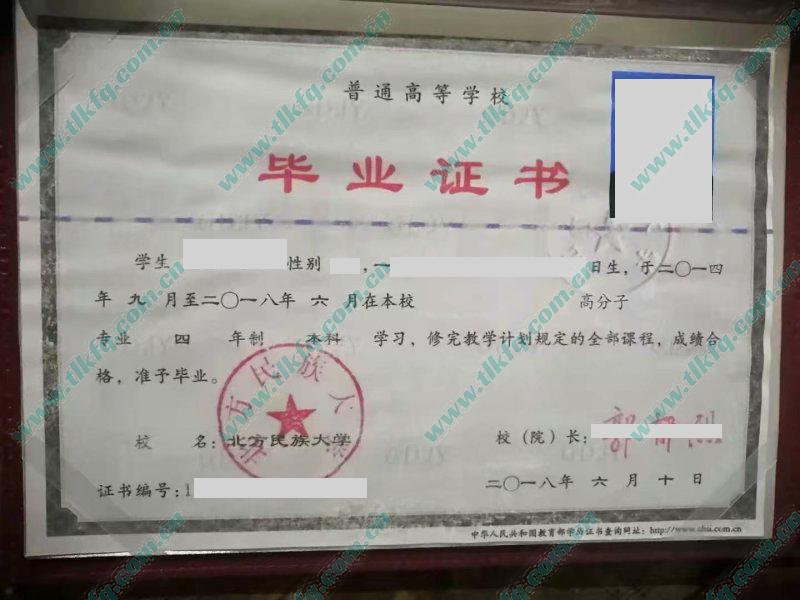 普通高等学校
毕业证书
学生 性别 ,一 日生,于二〇一四
年 九 月至二〇一八年 六 月在本校 高分子
专业 四 年制 本科 学习,修完教学计划规定的全部课程,成绩合
格,准予毕业。
北方民族大学
校 名:北方民族大学
校(院)长:
证书编号:1
二〇一八年 六 月 十 日
中华人民共和国教育部学历证书查询网址:http://www.chsi.com.cn
www.tlkfq.com.cn